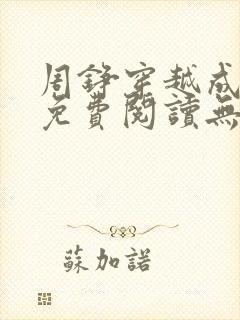 周錚穿越成
免費閱讀無
蘇加諾